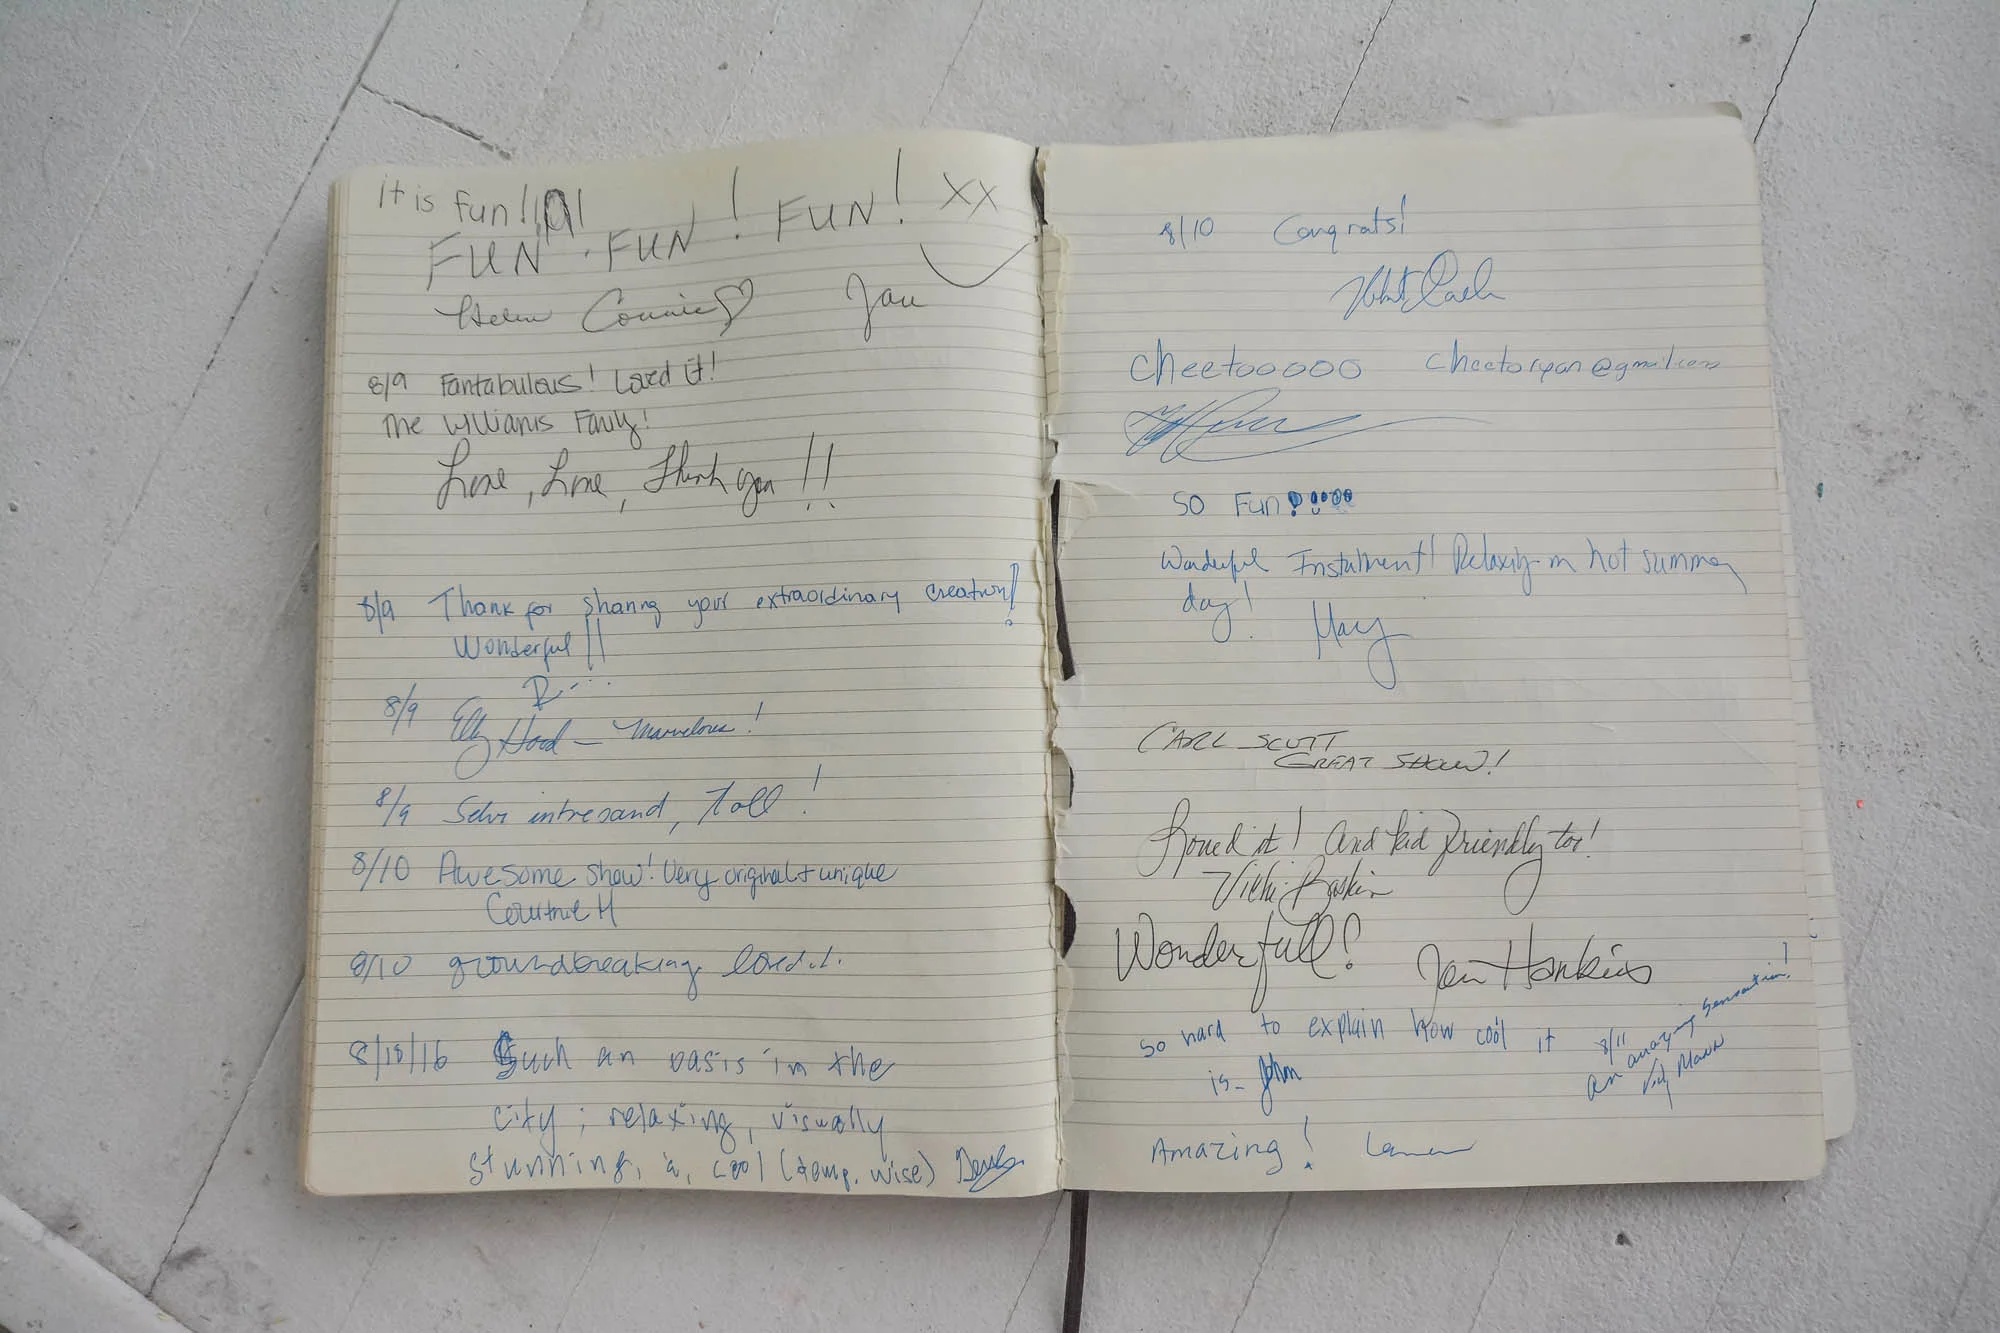 it is fun!!!!
FUN . FUN! FUN! XX
Helen Connie Jan
8/9 Fantabulous! Loved it!
The Williams Family!
Love, Love, Thank you!!
8/9 Thank for sharing your extraordinary creation!
Wonderful!!
8/9 Elly Hood - Marvelous!
8/9 Selv intresand, Tall!
8/10 Awesome show! Very original + unique
Courtnie H
8/10 groundbreaking. loved it.
8/10/16 Such an oasis in the
city; relaxing, visually
stunning, & cool (temp. wise)
8/10 Congrats!
cheetooooo cheetoryan@gmail.com
SO Fun!!!!!
Wonderful Instalment! Relaxing on hot summer
day! Mary
CARL SCOTT
GREAT SHOW!
Loved it! And kid friendly too!
Vicki Baskin
Wonderfull! Jan Hankins
so hard to explain how cool it
is - John
8/11
an amazing sensation!
Mann
Amazing! Lauren